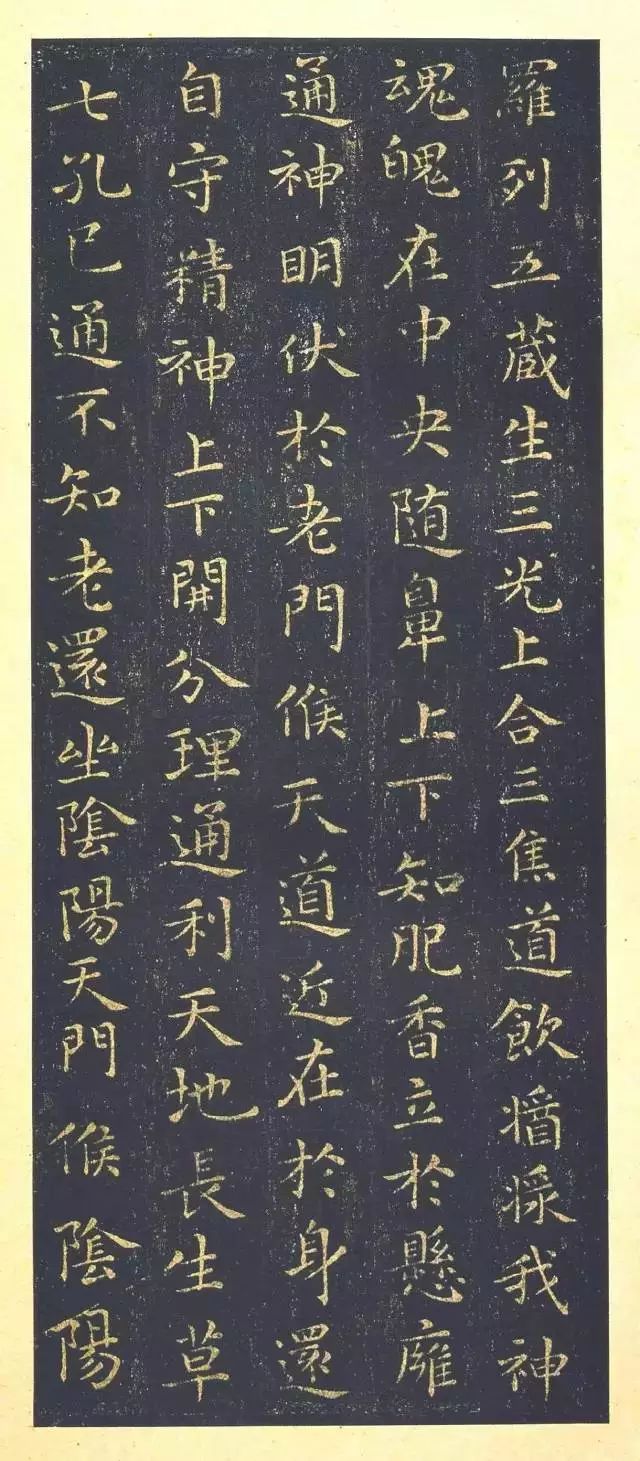 羅列五蔵生三光上合三焦道飲𤖅將我神
魂魄在中央随鼻上下知肥香立於懸廱
通神明伏於老門候天道近在於身還
自守精神上下開分理通利天地長生草
七孔已通不知老還坐陰陽天門候陰陽